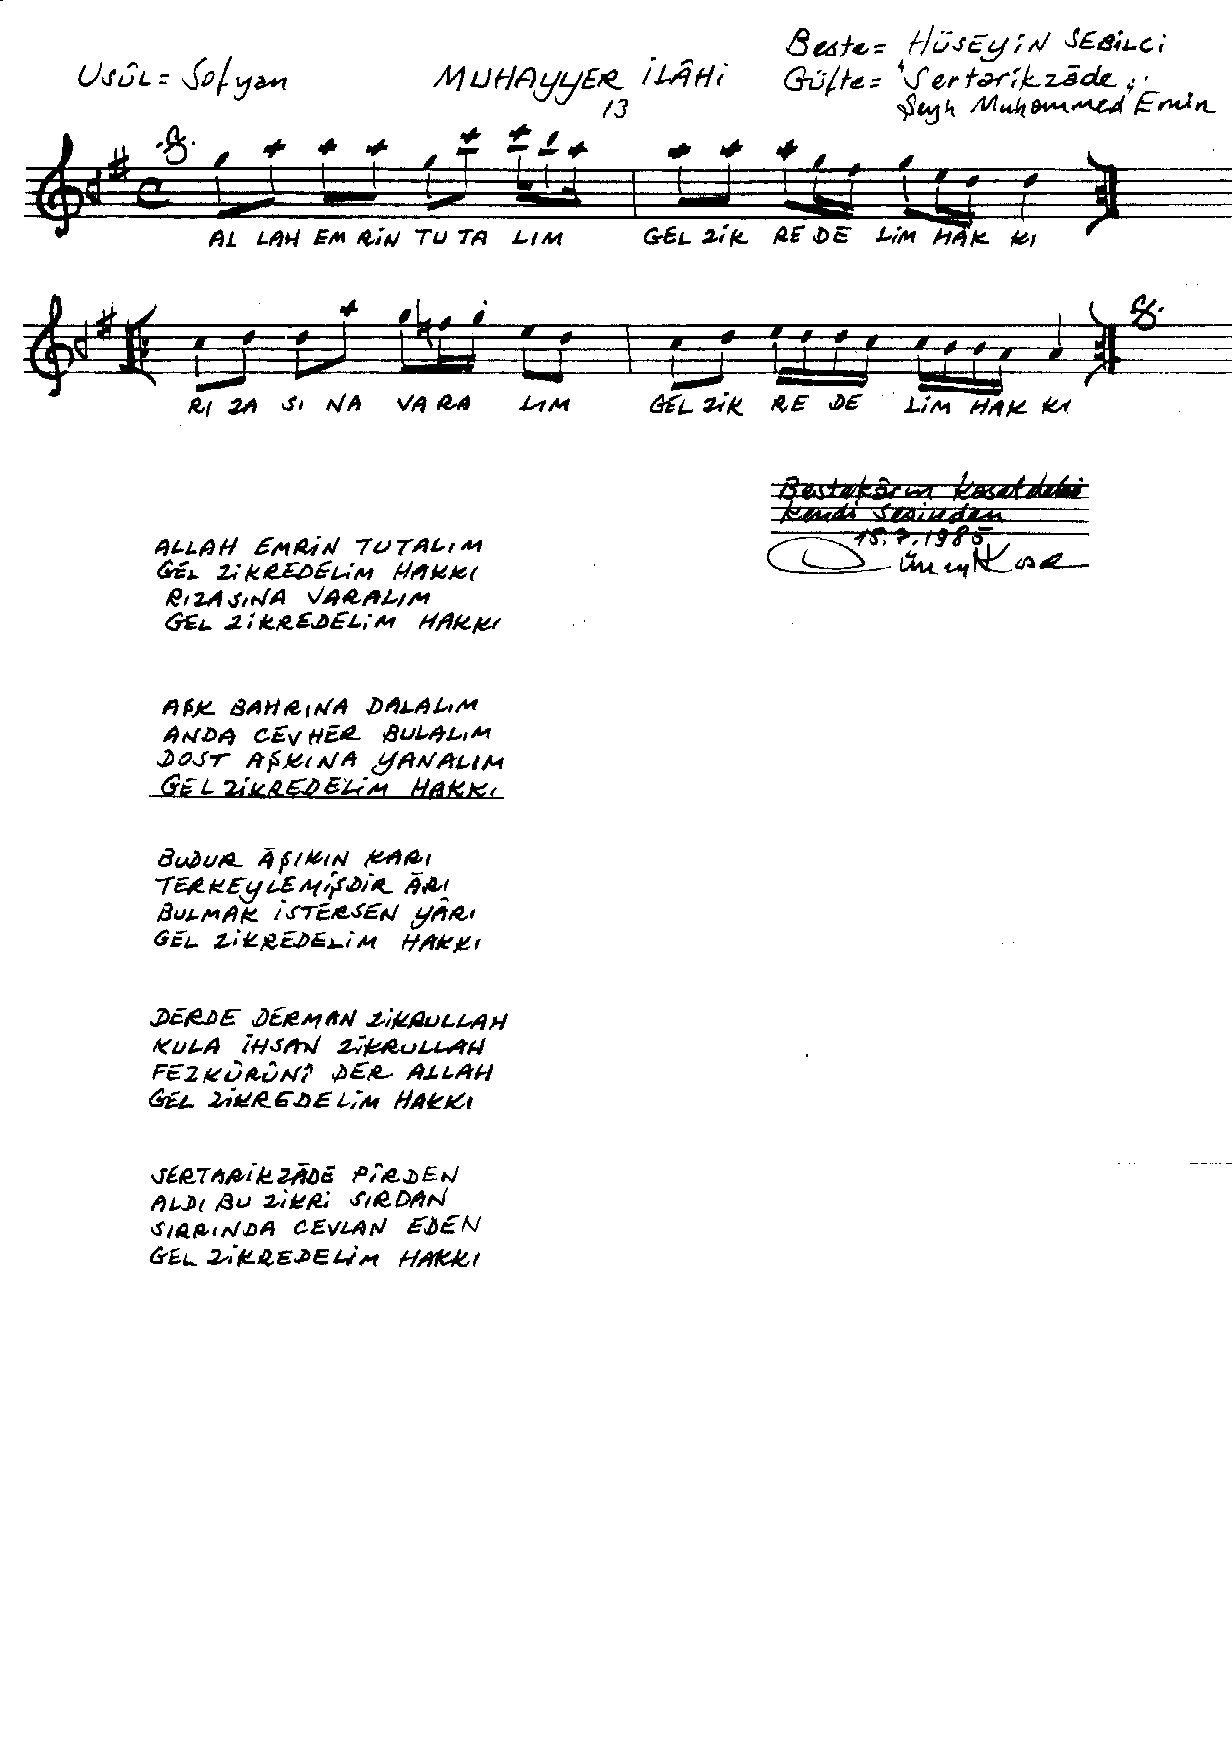 Beste= HÜSEYİN SEBİLCİ
USÛL= Sofyan MUHAYYER İLÂHİ Güfte= Sertarikzâde
13 Şeyh Muhammed Emin
AL LAH EM RİN TU TA LIM GEL ZİK RE DE LİM HAK KI
RI ZA SI NA VA RA LIM GEL ZİK RE DE LİM HAK KI
Bestekârın kasetdeki
kendi sesinden
15.7.1985
ALLAH EMRİN TUTALIM
GEL ZİKREDELİM HAKKI
RIZASINA VARALIM
GEL ZİKREDELİM HAKKI
AŞK BAHRINA DALALIM
ANDA CEVHER BULALIM
DOST AŞKINA YANALIM
GEL ZİKREDELİM HAKKI
BUDUR ÂŞIKIN KARI
TERKEYLEMİŞDİR ÂRI
BULMAK İSTERSEN YÂRI
GEL ZİKREDELİM HAKKI
DERDE DERMAN ZİKRULLAH
KULA İHSAN ZİKRULLAH
FEZKÛRÛNÎ DER ALLAH
GEL ZİKREDELİM HAKKI
SERTARİKZÂDE PÎRDEN
ALDI BU ZİKRİ SIRDAN
SIRRINDA CEVLAN EDEN
GEL ZİKREDELİM HAKKI